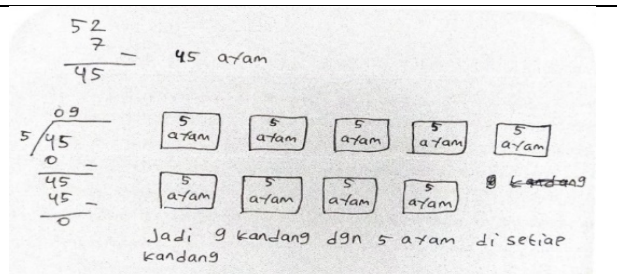 52
7 -
45
45 ayam
09
5/45
0 -
45
45 -
0
5 ayam
5 ayam
5 ayam
5 ayam
5 ayam
5 ayam
5 ayam
5 ayam
5 ayam
kandang
Jadi 9 kandang dgn 5 ayam di setiap
kandang